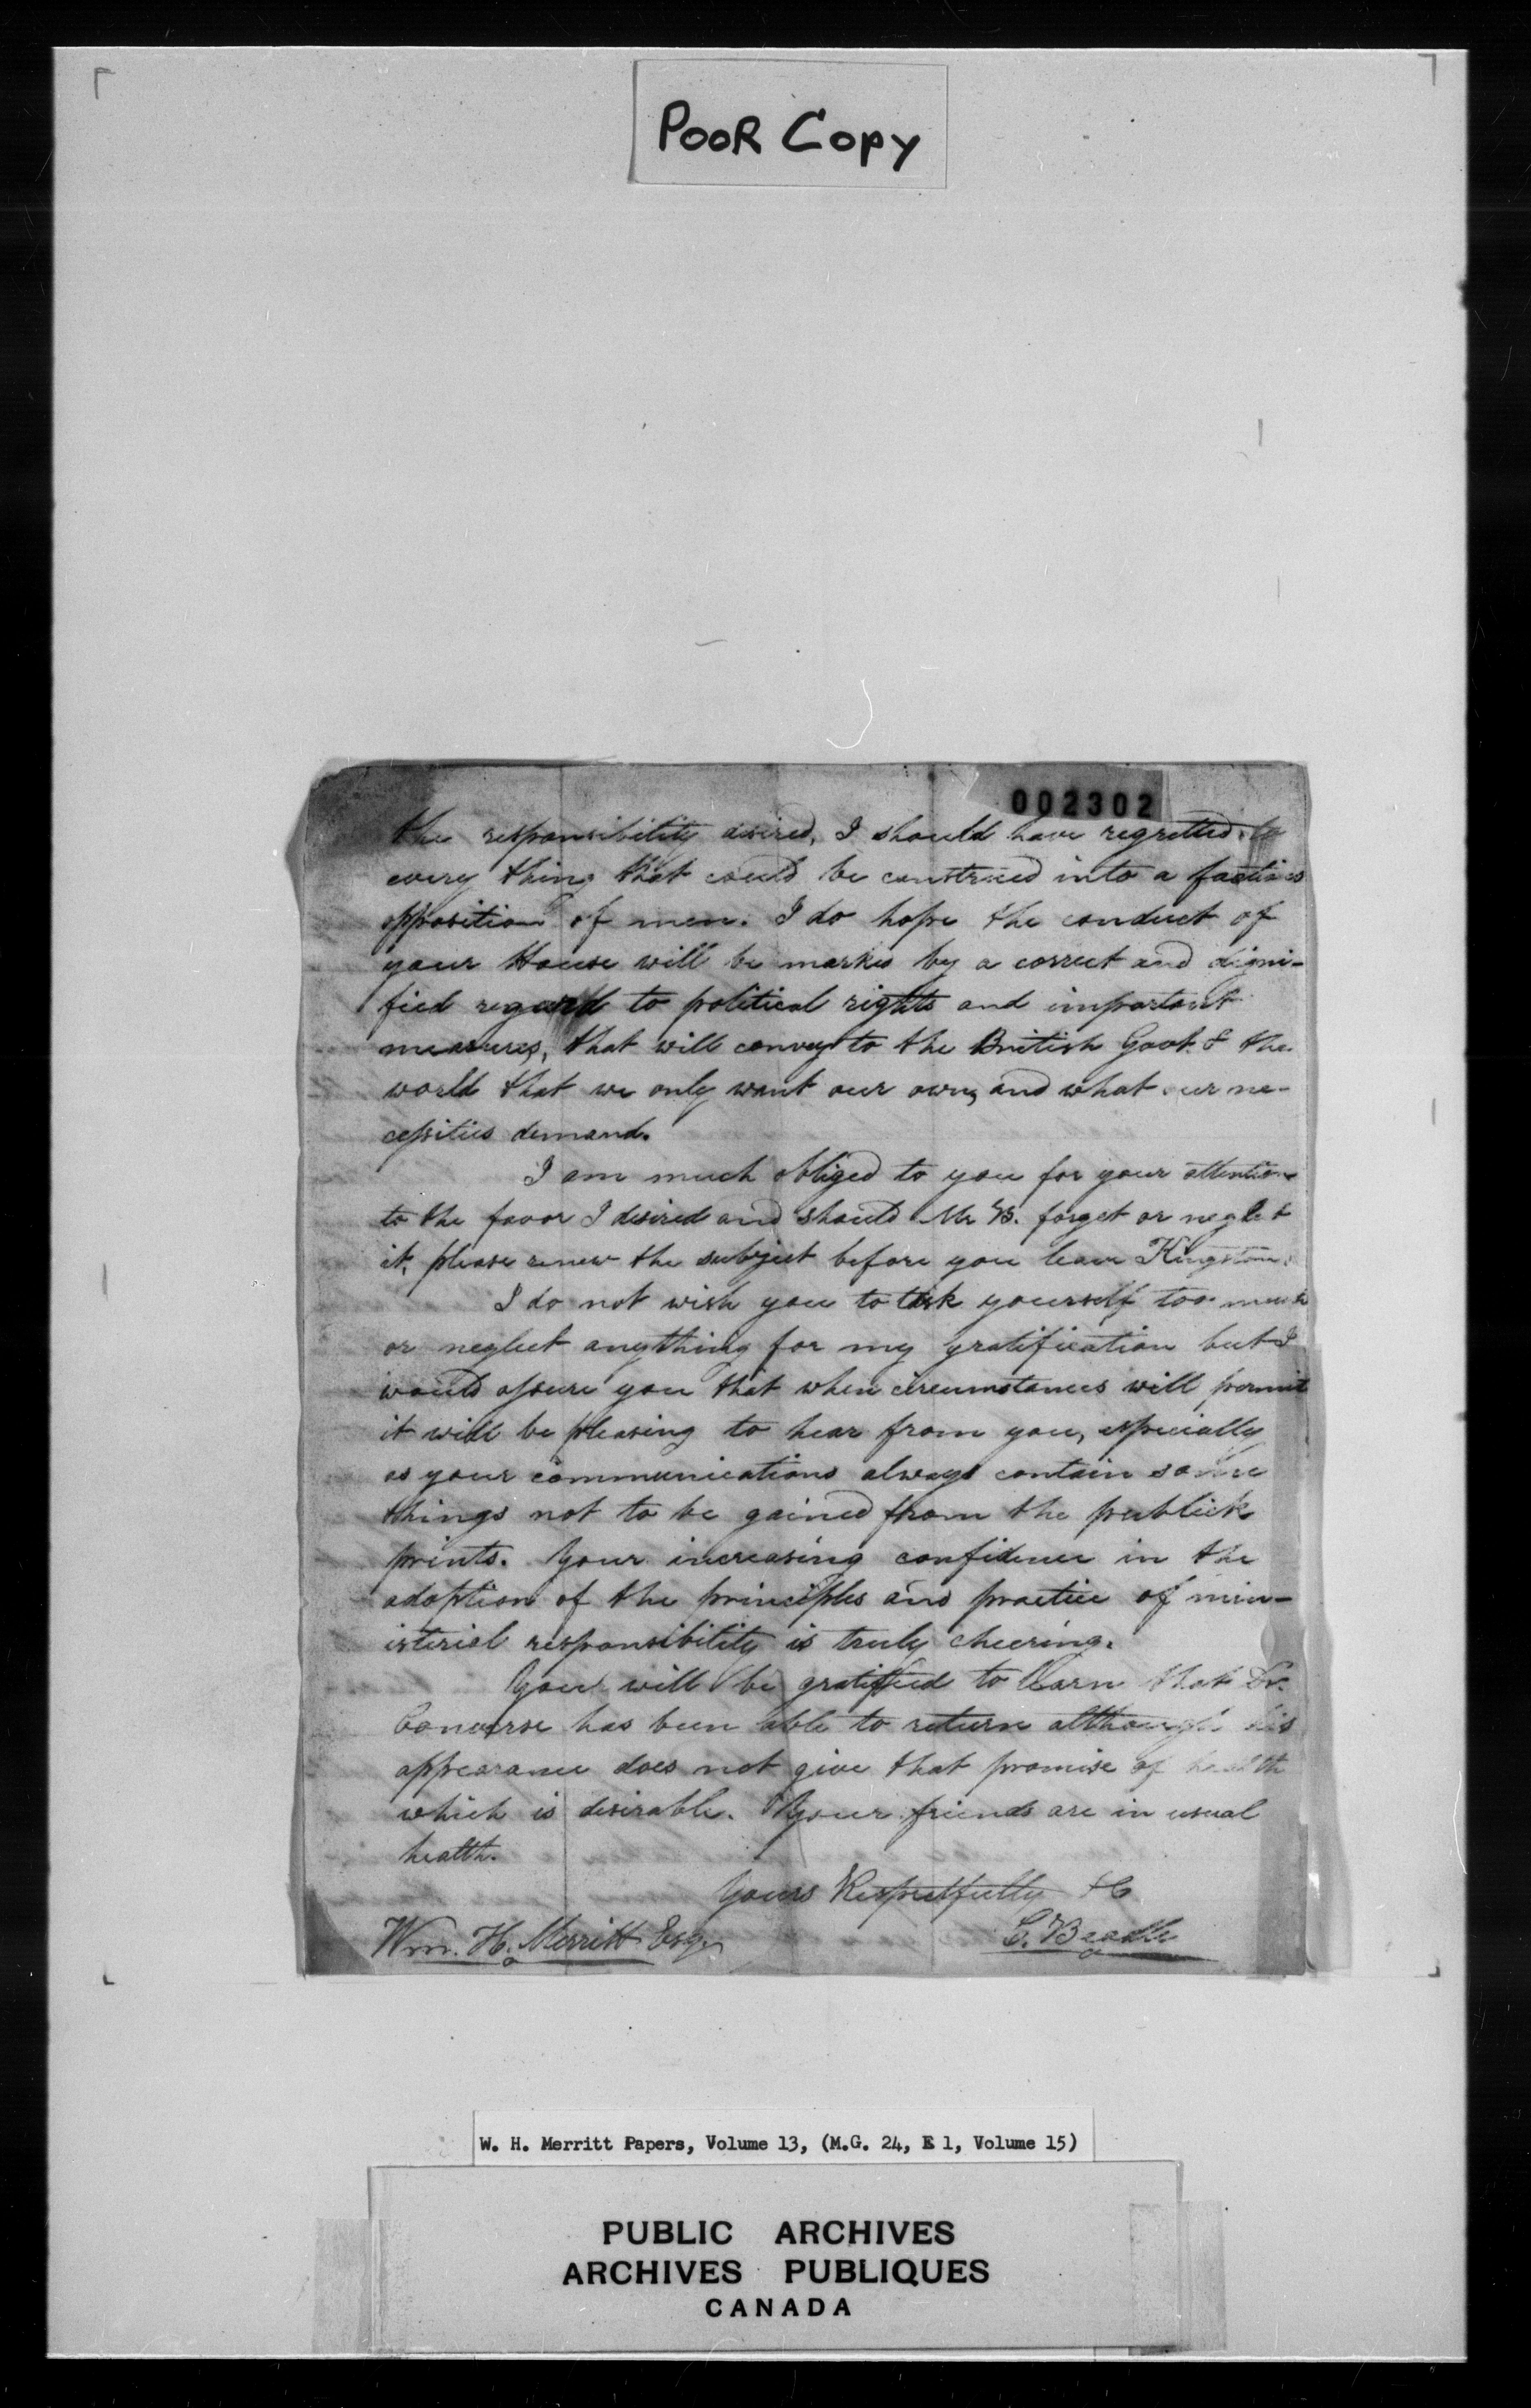 POOR COPY
002302
the responsibility desired, I should have regretted
every thing that could be construed into a factious
opposition of men. I do hope the conduct of
your House will be marked by a correct and digni-
fied regard to political rights and important
measures, that will convey to the British Govt. & the
world that we only want our own, and what our ne-
cessities demand.
I am much obliged to you for your attention
to the favor I desired and should Mr B. forget or neglect
it, please renew the subject before you leave Kingston.
I do not wish you to task yourself too much
or neglect anything for my gratification but I
would assure you that when circumstances will permit
it will be pleasing to hear from you, especially
as your communications always contain some
things not to be gained from the publick
prints. Your increasing confidence in the
adoption of the principles and practice of min-
isterial responsibility is truly cheering.
You will be gratified to learn that Dr.
Converse has been able to return although his
appearance does not give that promise of health
which is desirable. Your friends are in usual
health.
Yours Respectfully &c
Wm. H. Merritt Esqr. C. Beadle
W. H. Merritt Papers, Volume 13, (M.G. 24, E 1, Volume 15)
PUBLIC ARCHIVES
ARCHIVES PUBLIQUES
CANADA